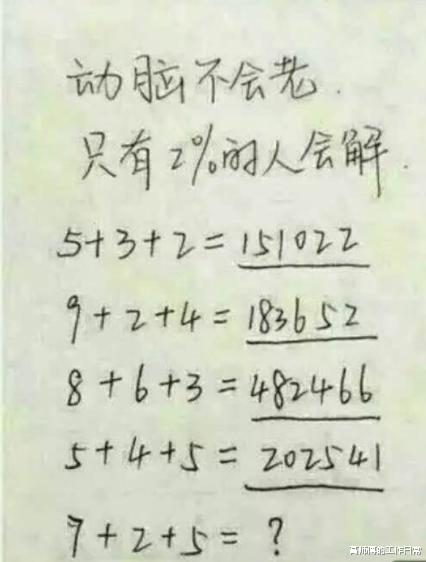 动脑不会老.
只有2%的人会解.
5+3+2=151022
9+2+4=183652
8+6+3=482466
5+4+5=202541
7+2+5=?